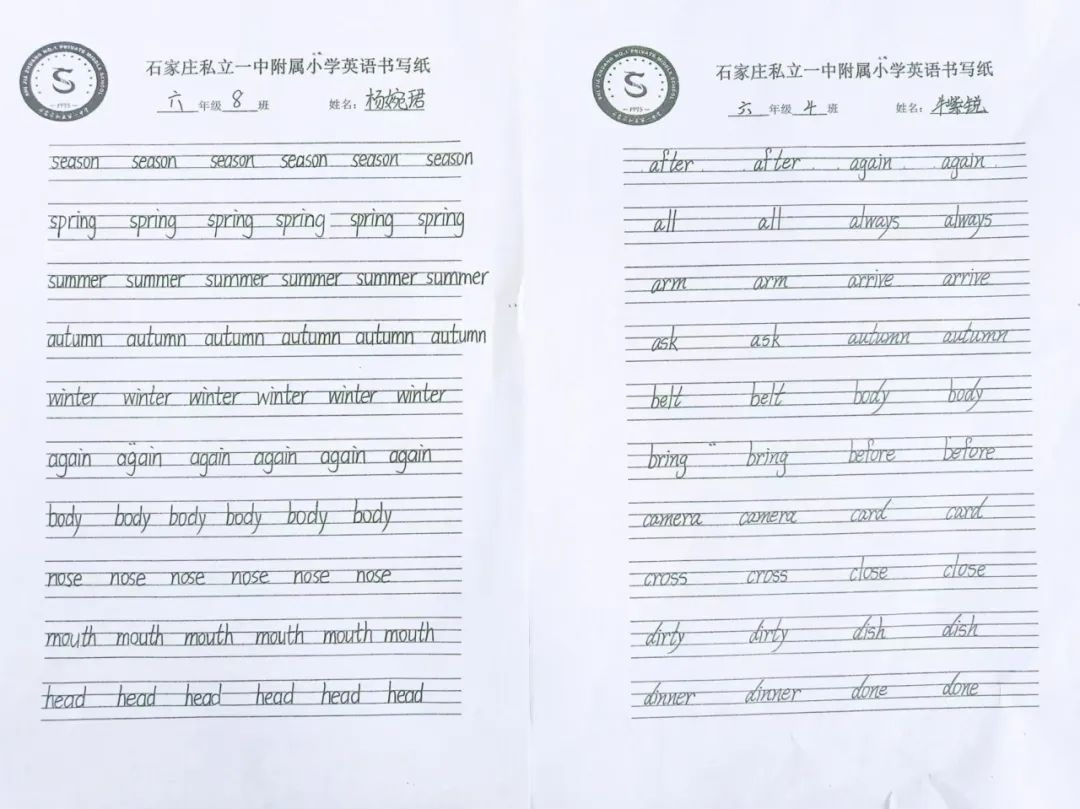 SHI JIA ZHUANG NO.1 PRIVATE MIDDLE SCHOOL
S
1995
石家庄私立一中附属小学英语书写纸
六年级8班 姓名:杨婉珺
season season season season season season
spring spring spring spring spring spring
summer summer summer summer summer summer
autumn autumn autumn autumn autumn autumn
winter winter winter winter winter winter
again again again again again again
body body body body body body
nose nose nose nose nose nose
mouth mouth mouth mouth mouth mouth
head head head head head head
SHI JIA ZHUANG NO.1 PRIVATE MIDDLE SCHOOL
S
1995
石家庄私立一中附属小学英语书写纸
六年级4班 姓名:
after after again again
all all always always
arm arm arrive arrive
ask ask autumn autumn
belt belt body body
bring bring before before
camera camera card card
cross cross close close
dirty dirty dish dish
dinner dinner done done